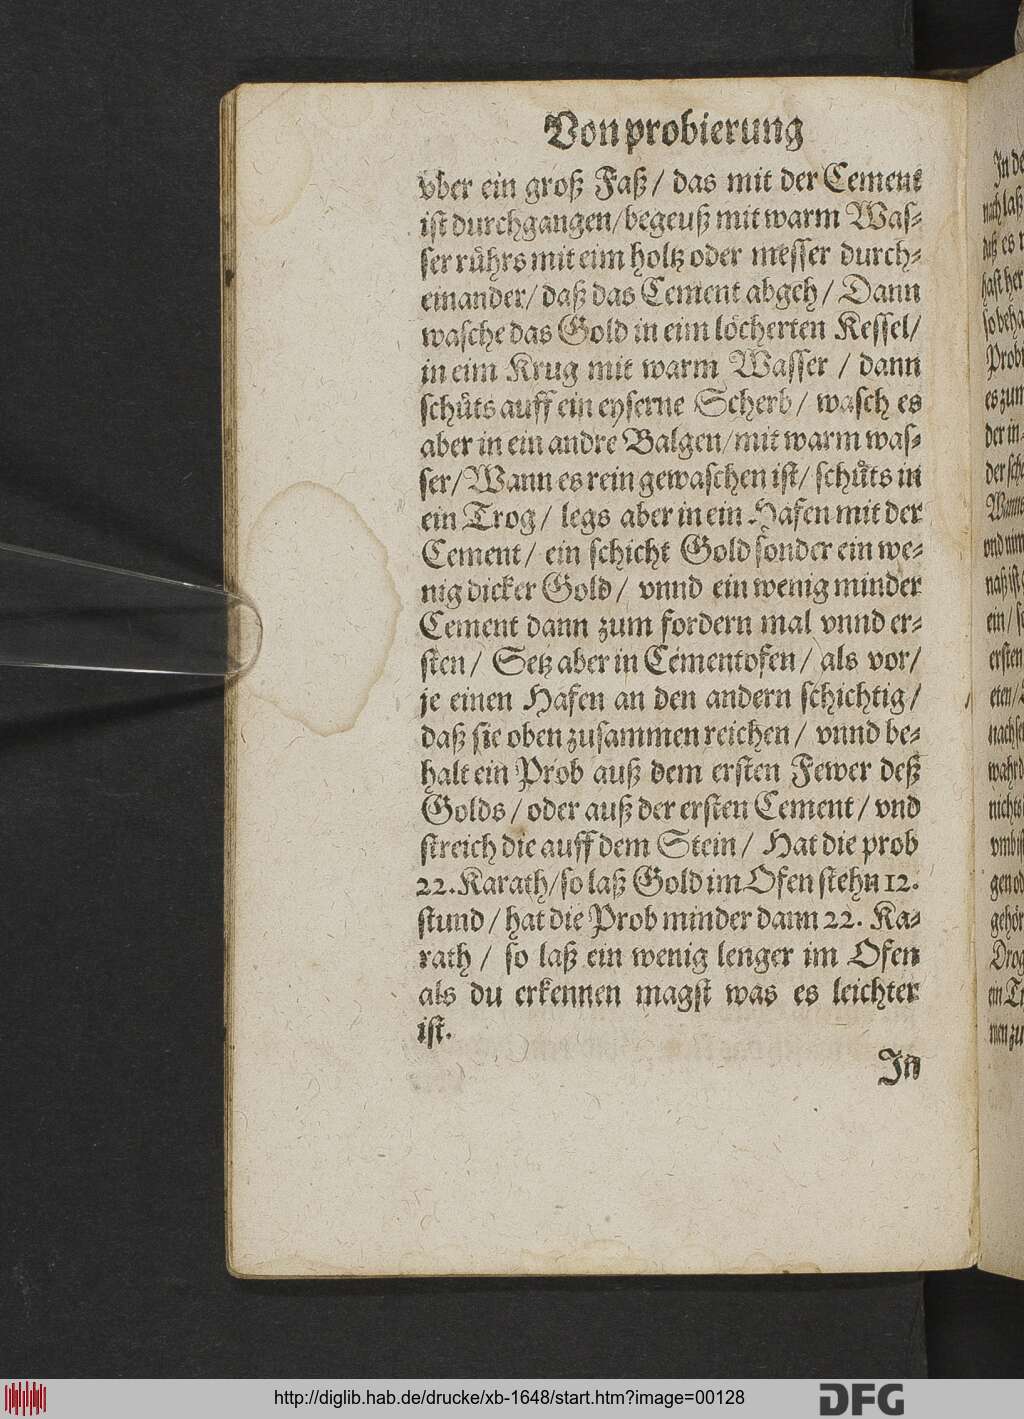 Von probierung
vber ein groß Faß / das mit der Cement
ist durchgangen / begeuß mit warm Was-
ser rührs mit eim holtz oder messer durch-
einander / daß das Cement abgeh / Dann
wasche das Gold in eim löcherten Kessel /
in eim Krug mit warm Wasser / dann
schüts auff ein eyserne Scherb / wasch es
aber in ein andre Balgen / mit warm was-
ser / Wann es rein gewaschen ist / schüts in
ein Trog / legs aber in ein Hafen mit der
Cement / ein schicht Gold sonder ein we-
nig dicker Gold / vnnd ein wenig minder
Cement dann zum fordern mal vnnd er-
sten / Setz aber in Cementofen / als vor /
je einen Hafen an den andern schichtig /
daß sie oben zusammen reichen / vnnd be-
halt ein Prob auß dem ersten Fewer deß
Golds / oder auß der ersten Cement / vnd
streich die auff dem Stein / Hat die prob
22. Karath / so laß Gold im Ofen stehn 12.
stund / hat die Prob minder dann 22. Ka-
rath / so laß ein wenig lenger im Ofen
als du erkennen magst was es leichter
ist.
In
http://diglib.hab.de/drucke/xb-1648/start.htm?image=00128
DFG